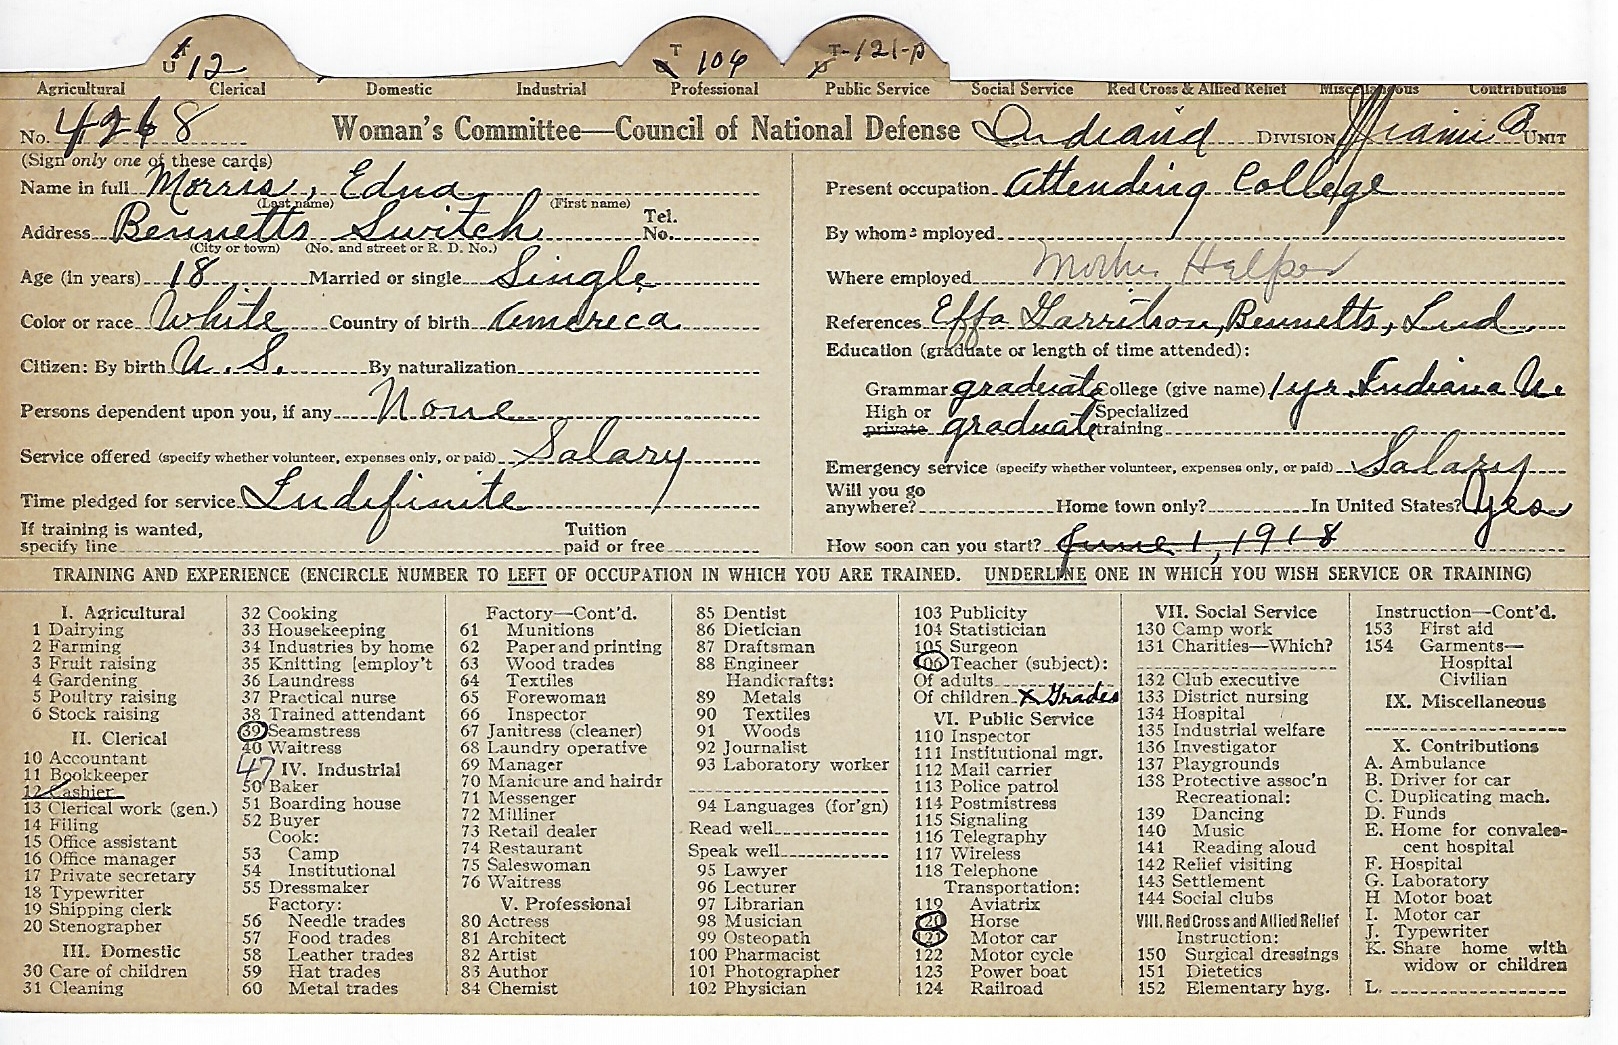 A U 12 T 106 T-121-P
Agricultural Clerical Domestic Industrial Professional Public Service Social Service Red Cross & Allied Relief Miscellaneous Contributions
No. 4268 Woman's Committee—Council of National Defense Indiana DIVISION Miami B UNIT
(Sign only one of these cards)
Name in full Morris, Edna
(Last name) (First name)
Address Bennetts Switch Tel. No.
(City or town) (No. and street or R. D. No.)
Age (in years) 18 Married or single Single
Color or race White Country of birth America
Citizen: By birth U. S. By naturalization
Persons dependent upon you, if any None
Service offered (specify whether volunteer, expenses only, or paid) Salary
Time pledged for service Indefinite
If training is wanted, Tuition
specify line paid or free
Present occupation Attending College
By whom employed
Where employed Mother Helper
References Effa Garritson, Bennetts, Ind.
Education (graduate or length of time attended):
Grammar graduate College (give name) 1 yr. Indiana U.
High or private graduate Specialized training
Emergency service (specify whether volunteer, expenses only, or paid) Salary
Will you go
anywhere? Home town only? In United States? Yes
How soon can you start? June 1, 1918
TRAINING AND EXPERIENCE (ENCIRCLE NUMBER TO LEFT OF OCCUPATION IN WHICH YOU ARE TRAINED. UNDERLINE ONE IN WHICH YOU WISH SERVICE OR TRAINING)
I. Agricultural
1 Dairying
2 Farming
3 Fruit raising
4 Gardening
5 Poultry raising
6 Stock raising
II. Clerical
10 Accountant
11 Bookkeeper
12 Cashier
13 Clerical work (gen.)
14 Filing
15 Office assistant
16 Office manager
17 Private secretary
18 Typewriter
19 Shipping clerk
20 Stenographer
III. Domestic
30 Care of children
31 Cleaning
32 Cooking
33 Housekeeping
34 Industries by home
35 Knitting [employ't
36 Laundress
37 Practical nurse
38 Trained attendant
39 Seamstress
40 Waitress
47 IV. Industrial
50 Baker
51 Boarding house
52 Buyer
Cook:
53 Camp
54 Institutional
55 Dressmaker
Factory:
56 Needle trades
57 Food trades
58 Leather trades
59 Hat trades
60 Metal trades
Factory—Cont'd.
61 Munitions
62 Paper and printing
63 Wood trades
64 Textiles
65 Forewoman
66 Inspector
67 Janitress (cleaner)
68 Laundry operative
69 Manager
70 Manicure and hairdr
71 Messenger
72 Milliner
73 Retail dealer
74 Restaurant
75 Saleswoman
76 Waitress
V. Professional
80 Actress
81 Architect
82 Artist
83 Author
84 Chemist
85 Dentist
86 Dietician
87 Draftsman
88 Engineer
Handicrafts:
89 Metals
90 Textiles
91 Woods
92 Journalist
93 Laboratory worker
94 Languages (for'gn)
Read well
Speak well
95 Lawyer
96 Lecturer
97 Librarian
98 Musician
99 Osteopath
100 Pharmacist
101 Photographer
102 Physician
103 Publicity
104 Statistician
105 Surgeon
106 Teacher (subject):
Of adults
Of children x Grades
VI. Public Service
110 Inspector
111 Institutional mgr.
112 Mail carrier
113 Police patrol
114 Postmistress
115 Signaling
116 Telegraphy
117 Wireless
118 Telephone
Transportation:
119 Aviatrix
120 Horse
121 Motor car
122 Motor cycle
123 Power boat
124 Railroad
VII. Social Service
130 Camp work
131 Charities—Which?
132 Club executive
133 District nursing
134 Hospital
135 Industrial welfare
136 Investigator
137 Playgrounds
138 Protective assoc'n
Recreational:
139 Dancing
140 Music
141 Reading aloud
142 Relief visiting
143 Settlement
144 Social clubs
VIII. Red Cross and Allied Relief
Instruction:
150 Surgical dressings
151 Dietetics
152 Elementary hyg.
Instruction—Cont'd.
153 First aid
154 Garments—
Hospital
Civilian
IX. Miscellaneous
X. Contributions
A. Ambulance
B. Driver for car
C. Duplicating mach.
D. Funds
E. Home for convales-
cent hospital
F. Hospital
G. Laboratory
H Motor boat
I. Motor car
J. Typewriter
K. Share home with
widow or children
L.